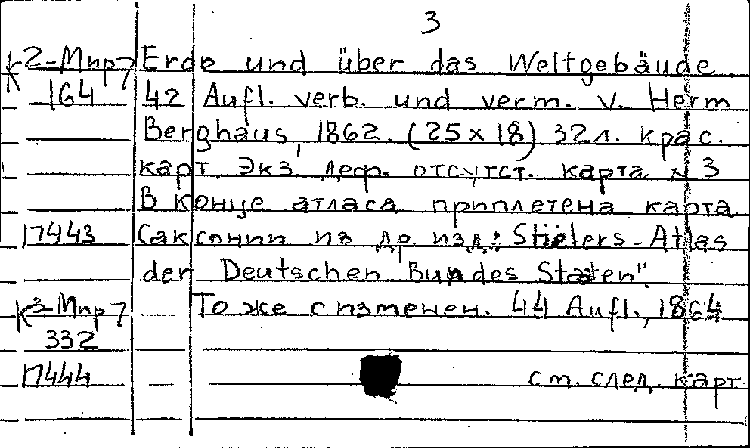 3
К2-Мир7 Erde und über das Weltgebäude
164 42 Aufl. verb. und verm. v. Herm
Berghaus, 1862. (25x18) 32л. крас.
карт. Экз. деф. отсутст. карта №3
В конце атласа приплетена карта
П7443 Саксонии из др. изд.: Stielers-Atlas
der Deutschen Bundes Staten".
К3-Мир7 То же с изменен. 44 Aufl., 1864
332
П7444 см. след. карт